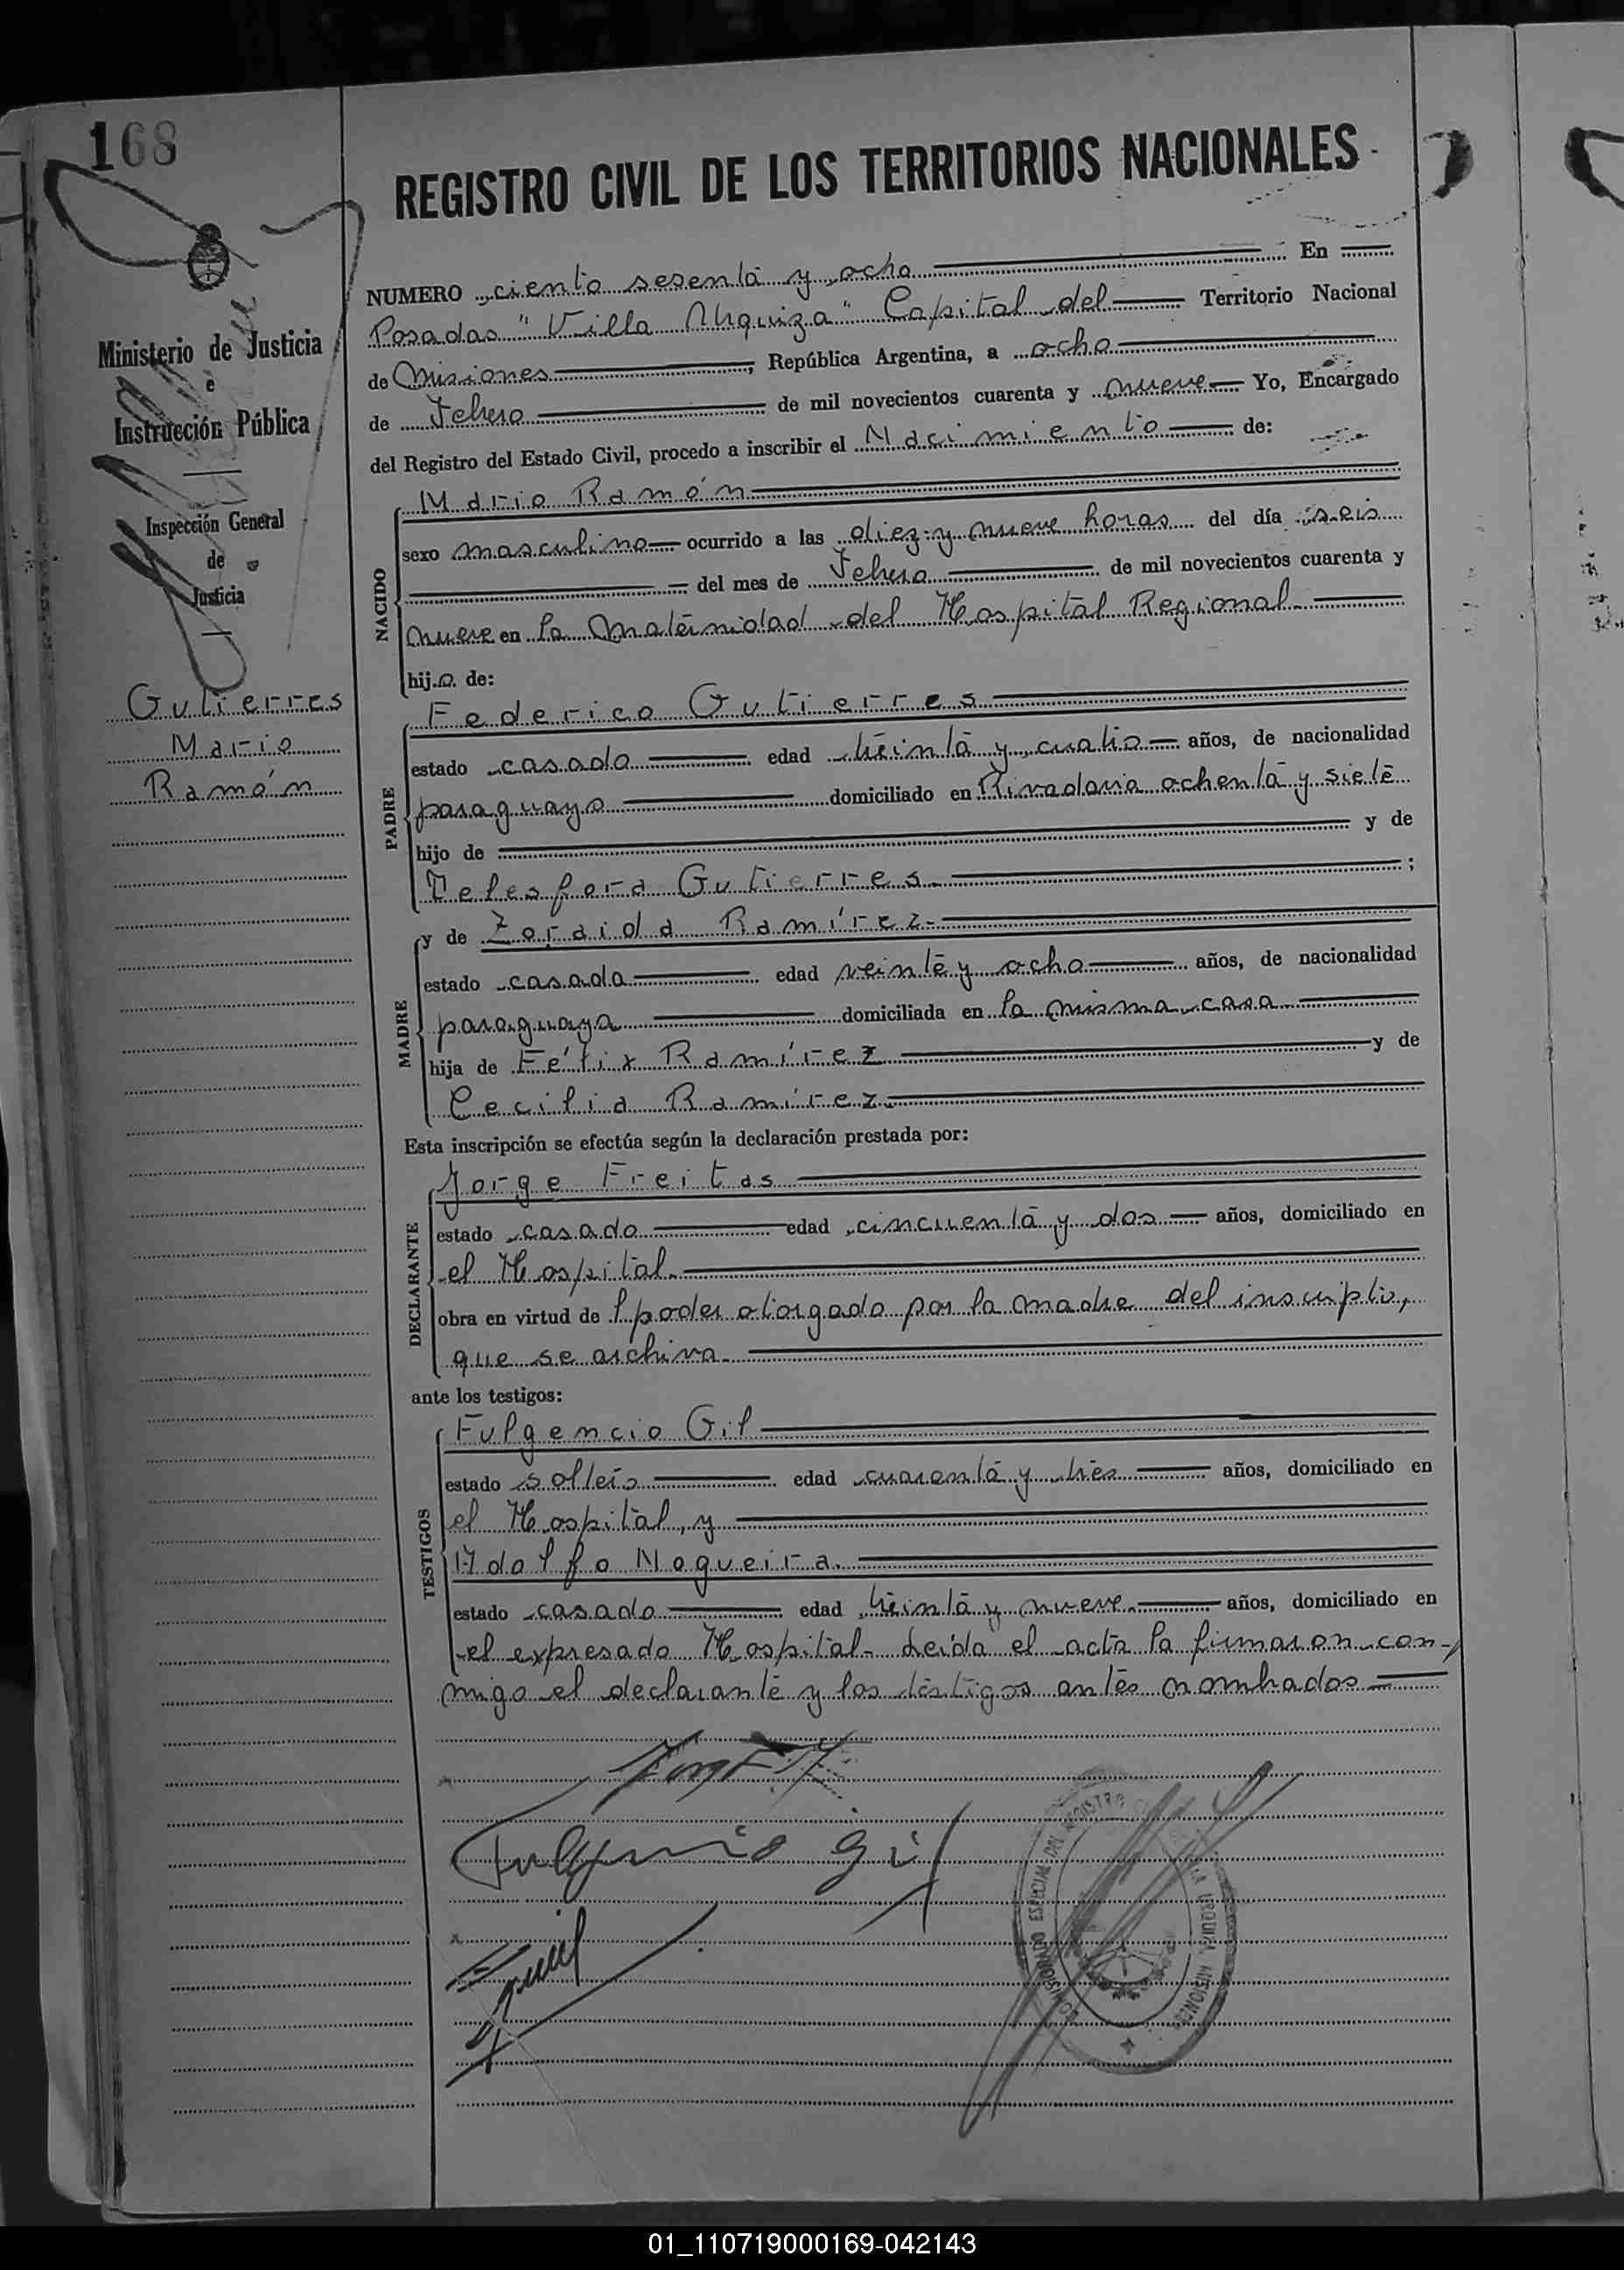 168
REGISTRO CIVIL DE LOS TERRITORIOS NACIONALES
Ministerio de Justicia
e
Instrucción Pública
Inspección General
de
Justicia
Gutierres
Mario
Ramón
NUMERO ciento sesenta y ocho En
Posadas "Villa Urquiza" Capital del Territorio Nacional
de Misiones, República Argentina, a ocho
de Febrero de mil novecientos cuarenta y nueve Yo, Encargado
del Registro del Estado Civil, procedo a inscribir el Nacimiento de:
NACIDO
Mario Ramón
sexo masculino ocurrido a las diez y nueve horas del día seis
del mes de Febrero de mil novecientos cuarenta y
nueve en la Maternidad del Hospital Regional.
hijo de:
PADRE
Federico Gutierres
estado casado edad treinta y cuatro años, de nacionalidad
paraguayo domiciliado en Rivadavia ochenta y siete
hijo de y de
Telesfora Gutierres. ;
MADRE
y de Zoraida Ramírez.
estado casada edad veinte y ocho años, de nacionalidad
paraguaya domiciliada en la misma casa
hija de Félix Ramírez y de
Cecilia Ramírez.
Esta inscripción se efectúa según la declaración prestada por:
DECLARANTE
Jorge Freitas
estado casado edad cincuenta y dos años, domiciliado en
el Hospital.
obra en virtud de poder otorgado por la madre del inscripto,
que se archiva.
ante los testigos:
TESTIGOS
Fulgencio Gil
estado soltero edad cuarenta y tres años, domiciliado en
el Hospital, y
Adolfo Nogueira.
estado casado edad treinta y nueve años, domiciliado en
el expresado Hospital. Leída el acta la firmaron con-
migo el declarante y los testigos antes nombrados
Fulgencio Gil
COMISIONADO ESPECIAL DEL REGISTRO
URQUIZA MISIONES
01_110719000169-042143